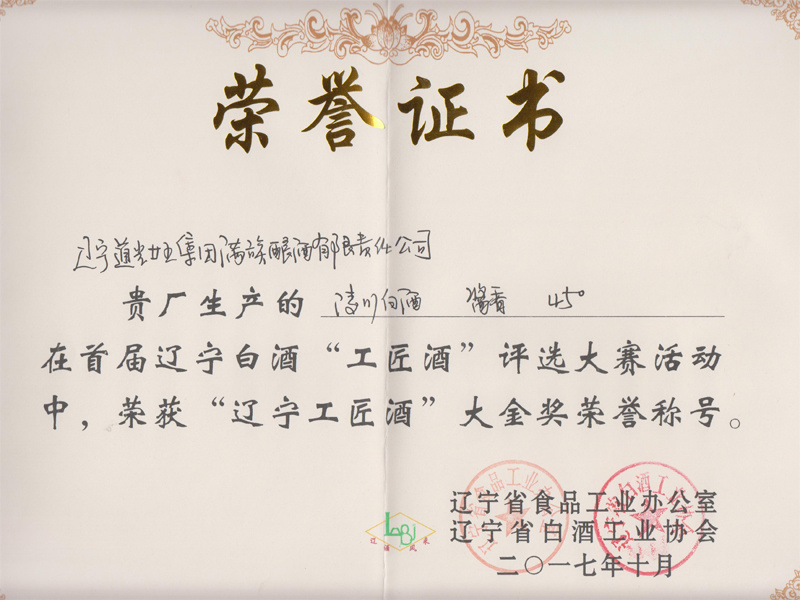 荣誉证书
辽宁道光廿五集团满族酿酒有限责任公司
贵厂生产的 凌川白酒 酱香 45°
在首届辽宁白酒“工匠酒”评选大赛活动
中，荣获“辽宁工匠酒”大金奖荣誉称号。
辽宁省食品工业办公室
辽宁省白酒工业协会
二〇一七年十月